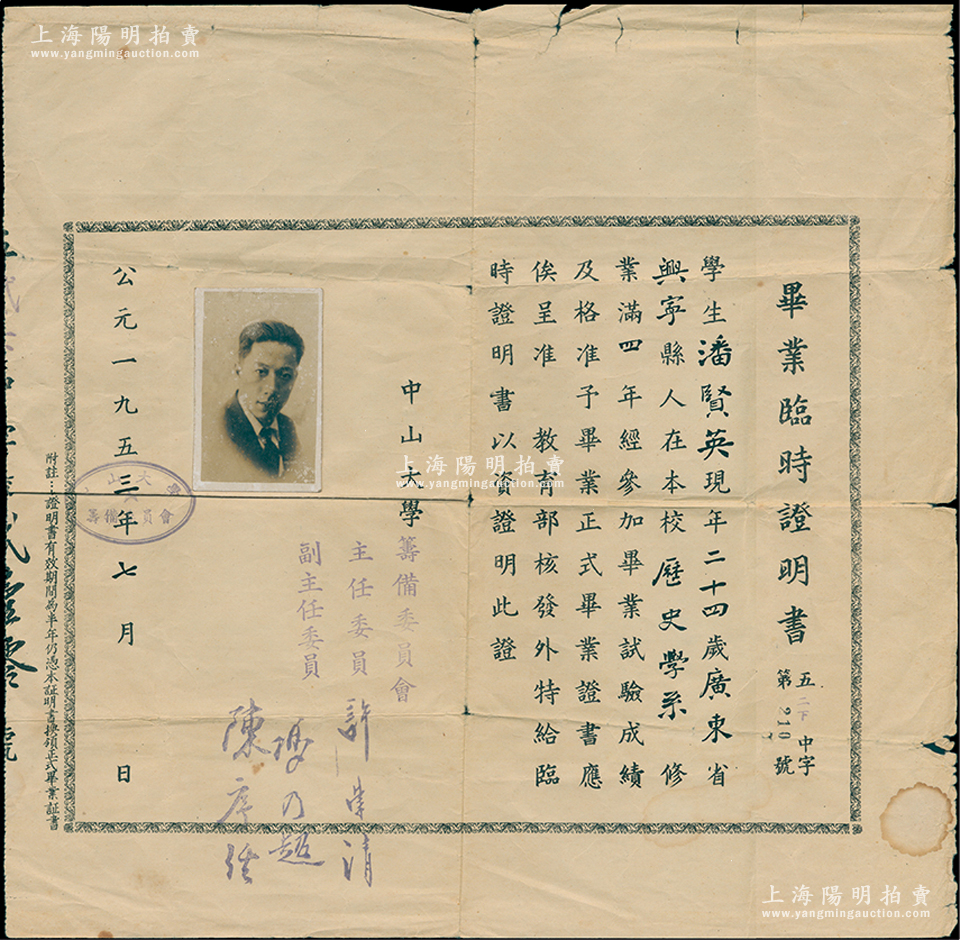 上海陽明拍賣
www.yangmingauction.com
畢業臨時證明書
五二下中字
第210號
學生潘賢英現年二十四歲廣東省
興寧縣人在本校歷史學系修
業滿四年經參加畢業試驗成績
及格准予畢業正式畢業證書應
俟呈准 教育部核發外特給臨
時證明書以資證明此證
中山大學籌備委員會
主任委員 許崇清
副主任委員 馮乃超
陳序經
公元一九五三年七月 日
山大學
籌備委員會
附註：證明書有效期間為半年仍憑本証明書換領正式畢業証書
號
上海陽明拍賣
www.yangmingauction.com
上海陽明拍賣
www.yangmingauction.com